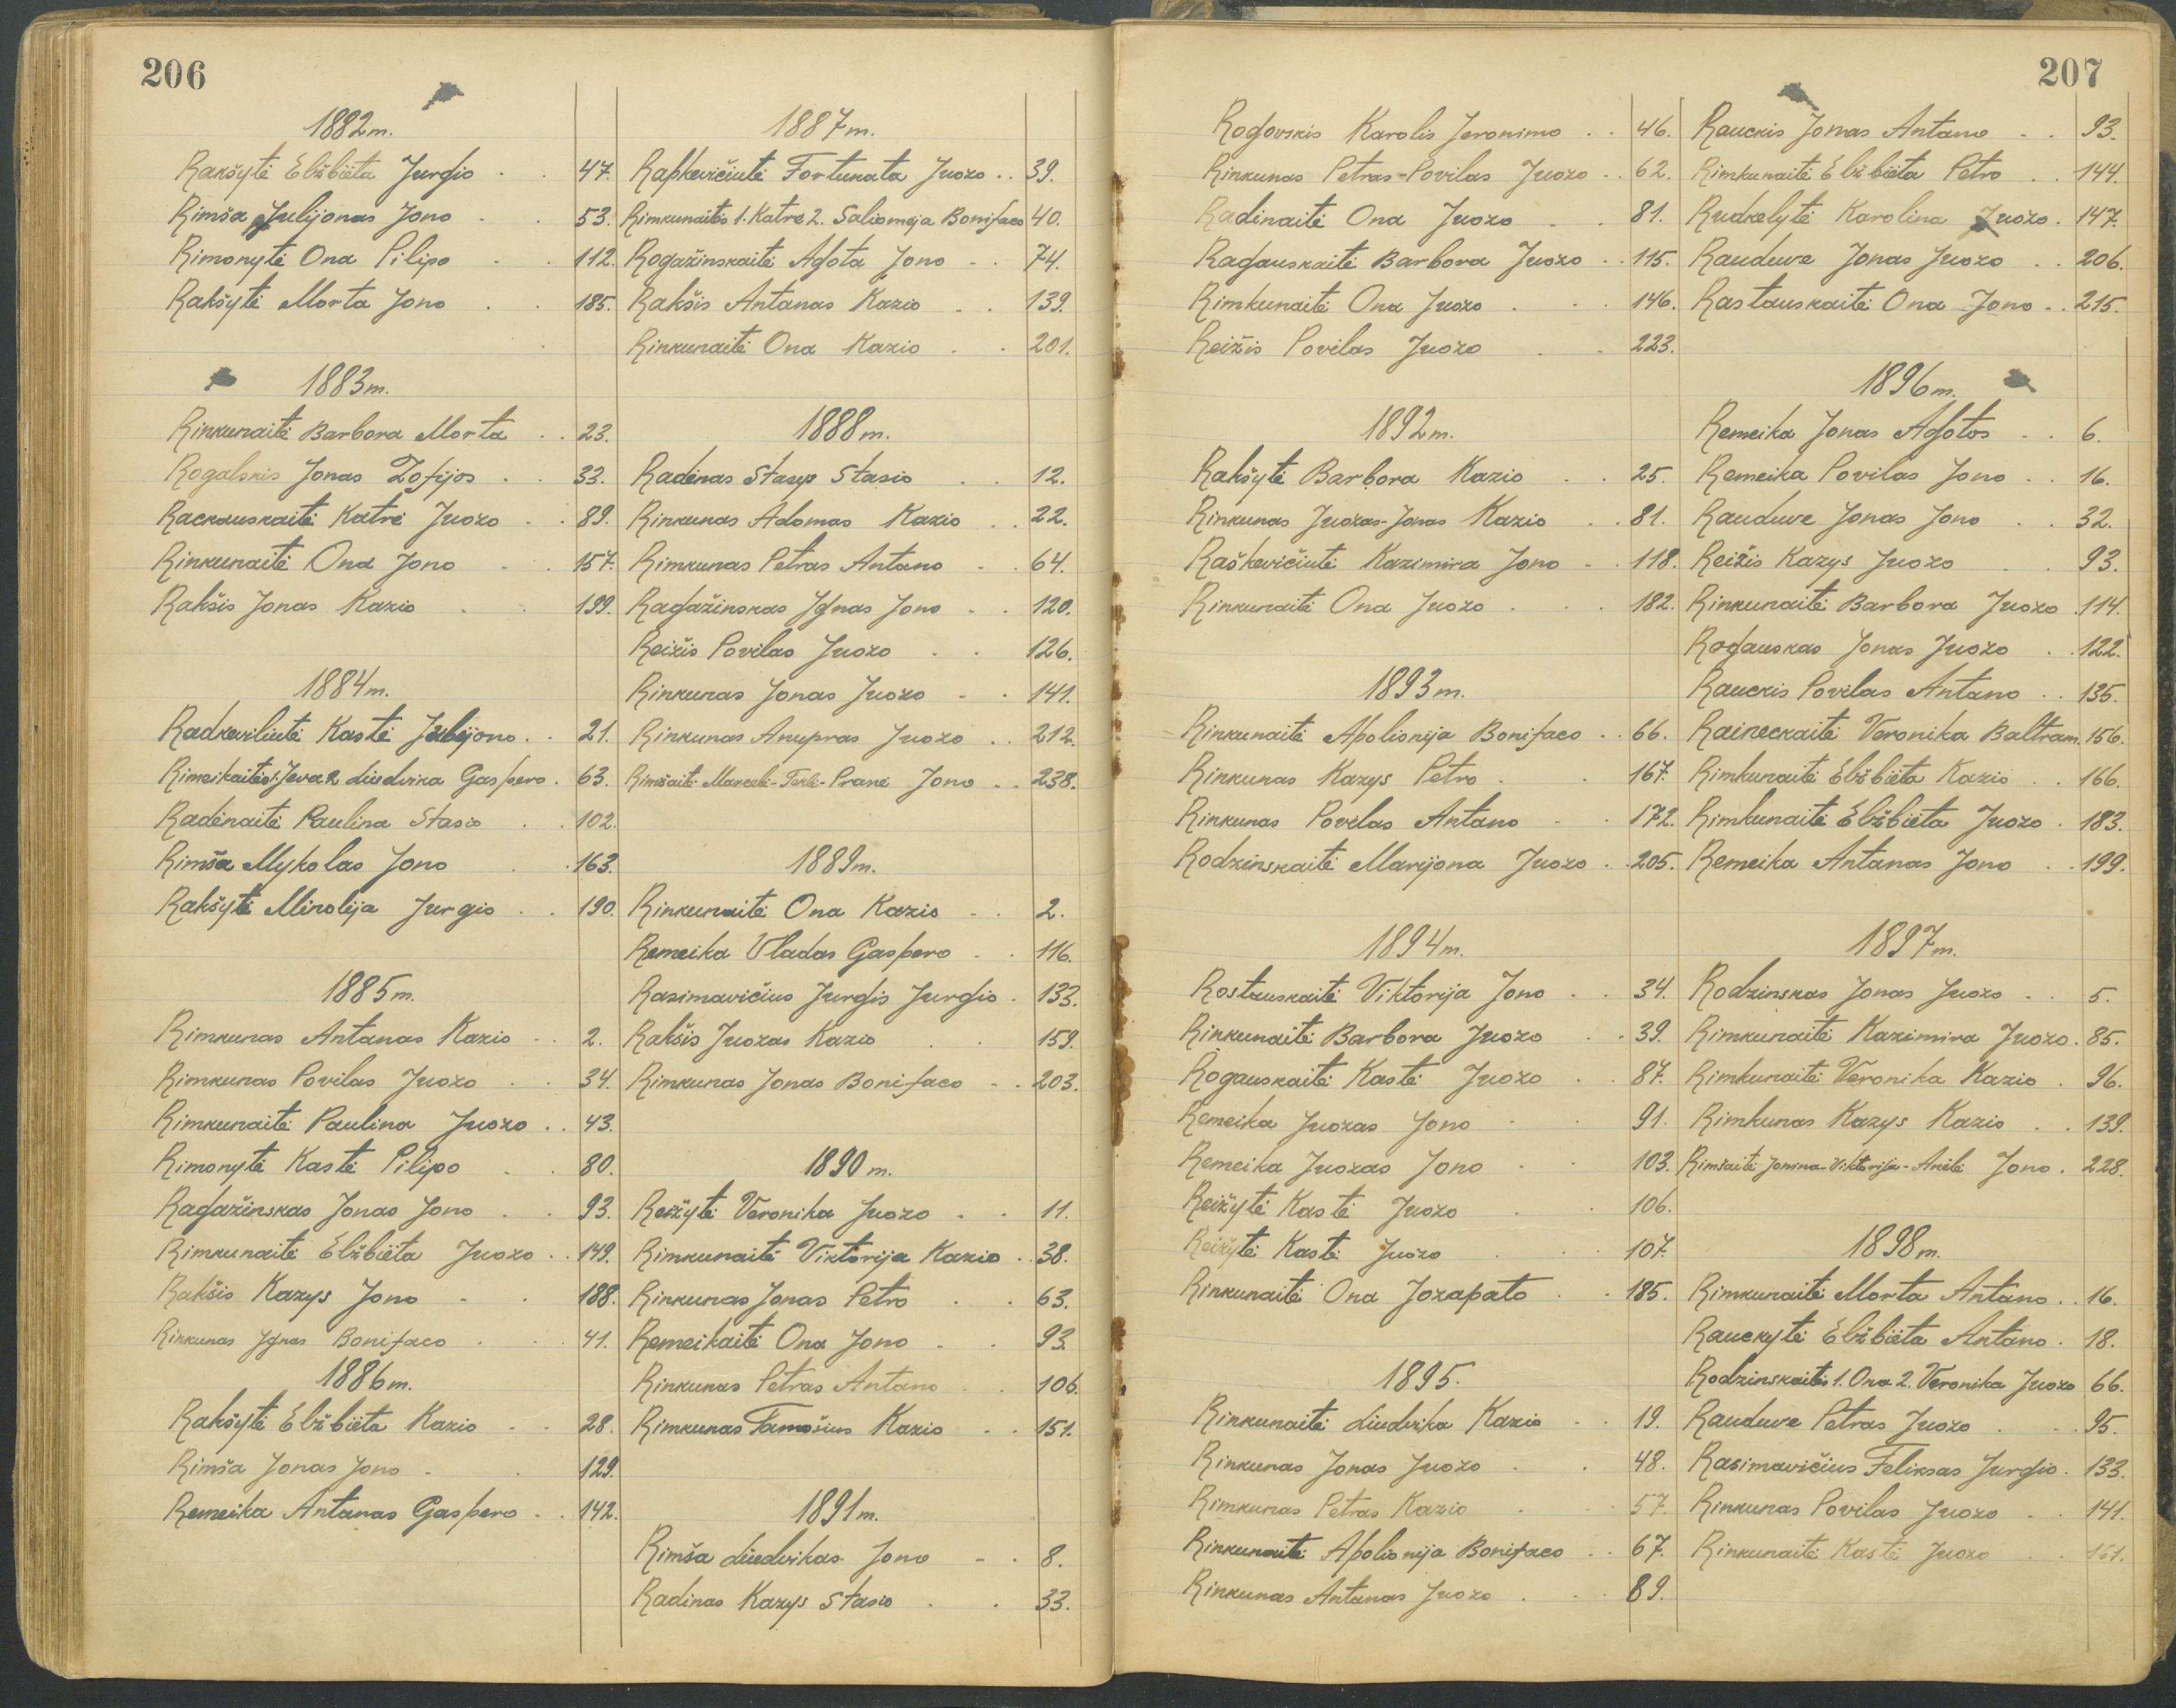 206
1882m.
Rakšytė Elžbieta Jurgio . . 47.
Rimša Julijonas Jono . . 53.
Rimonytė Ona Pilipo . . 112.
Rakšytė Morta Jono . . 185.
1883m.
Rinkunaitė Barbora Morta . . 23.
Rogalskis Jonas Zofijos . . 33.
Rackauskaitė Katrė Juozo . . 89.
Rinkunaitė Ona Jono . . 157.
Rakšis Jonas Kazio . . 199.
1884m.
Radzeviliutė Kastė Julijono . . 21.
Rimeikaitės 1. Jeva 2. Liudvika Gaspero . 63.
Radėnaitė Paulina Stasio . . 102.
Rimša Mykolas Jono . . 163.
Rakšytė Mirolija Jurgio . . 190.
1885m.
Rimkunas Antanas Kazio . . 2.
Rimkunas Povilas Juozo . . 34.
Rimkunaitė Paulina Juozo . . 43.
Rimonytė Kastė Pilipo . . 80.
Ragažinskas Jonas Jono . . 93.
Rimkunaitė Elžbieta Juozo . . 149.
Rakšis Kazys Jono . . 188.
Rinkunas Ignas Bonifaco . . 41.
1886m.
Rakšytė Elžbieta Kazio . . 28.
Rimša Jonas Jono . . 129.
Remeika Antanas Gaspero . . 142.
1887m.
Rapkevičiutė Fortunata Juozo . . 39.
Rimkunaitės 1. Katrė 2. Saliomėja Bonifaco 40.
Rogažinskaitė Agota Jono . . 74.
Rakšis Antanas Kazio . . 139.
Rinkunaitė Ona Kazio . . 201.
1888m.
Radėnas Stasys Stasio . . 12.
Rinkunas Adomas Kazio . . 22.
Rimkunas Petras Antano . . 64.
Ragažinskas Ignas Jono . . 120.
Reižis Povilas Juozo . . 126.
Rinkunas Jonas Juozo . . 141.
Rinkunas Anupras Juozo . . 212.
Rimšaitė Marcelė-Teklė-Pranė Jono . . 238.
1889m.
Rinkunaitė Ona Kazio . . 2.
Remeika Vladas Gaspero . . 116.
Rasimavičius Jurgis Jurgio . 133.
Rakšis Juozas Kazio . . 159.
Rimkunas Jonas Bonifaco . . 203.
1890m.
Reižytė Veronika Juozo . . 11.
Rimkunaitė Viktorija Kazio . . 38.
Rinkunas Jonas Petro . . 63.
Remeikaitė Ona Jono . . 93.
Rinkunas Petras Antano . . 106.
Rimkunas Tamošius Kazio . . 151.
1891m.
Rimša Liudvikas Jono . . 8.
Radinas Kazys Stasio . . 33.
207
Rogovskis Karolis Jeronimo . . 46.
Rinkunas Petras-Povilas Juozo . . 62.
Radinaitė Ona Juozo . . 81.
Ragauskaitė Barbora Juozo . . 115.
Rimkunaitė Ona Juozo . . 146.
Reižis Povilas Juozo . . 223.
1892m.
Rakšytė Barbora Kazio . . 25.
Rinkunas Juozas-Jonas Kazio . . 81.
Raškevičiutė Kazimira Jono . . 118.
Rinkunaitė Ona Juozo . . 182.
1893m.
Rinkunaitė Apolionija Bonifaco . . 66.
Rinkunas Kazys Petro . . 167.
Rinkunas Povilas Antano . . 172.
Rodzinskaitė Marijona Juozo . . 205.
1894m.
Rostauskaitė Viktorija Jono . . 34.
Rinkunaitė Barbora Juozo . . 39.
Rogauskaitė Kastė Juozo . . 87.
Remeika Juozas Jono . . 91.
Remeika Juozas Jono . . 103.
Reižytė Kastė Juozo . . 106.
Reižytė Kastė Juozo . . 107.
Rinkunaitė Ona Jozapato . . 185.
1895.
Rinkunaitė Liudvika Kazio . . 19.
Rinkunas Jonas Juozo . . 48.
Rimkunas Petras Kazio . . 57.
Rinkunaitė Apolionija Bonifaco . . 67.
Rinkunas Antanas Juozo . . 89.
Rauckis Jonas Antano . . 93.
Rimkunaitė Elžbieta Petro . . 144.
Rudkelytė Karolina Juozo . 147.
Rauduve Jonas Juozo . . 206.
Rastauskaitė Ona Jono . . 215.
1896m.
Remeika Jonas Agotos . . 6.
Remeika Povilas Jono . . 16.
Rauduve Jonas Jono . . 32.
Reižis Kazys Juozo . . 93.
Rinkunaitė Barbora Juozo . 114.
Rogauskas Jonas Juozo . . 122.
Rauckis Povilas Antano . . 135.
Raineckaitė Veronika Baltram. 156.
Rimkunaitė Elžbieta Kazio . . 166.
Rimkunaitė Elžbieta Juozo . 183.
Remeika Antanas Jono . . 199.
1897m.
Rodzinskas Jonas Juozo . . 5.
Rimkunaitė Kazimira Juozo . 85.
Rimkunaitė Veronika Kazio . 96.
Rimkunas Kazys Kazio . . 139.
Rimšaitė Jonina-Viktorija-Anėlė Jono . 228.
1898m.
Rimkunaitė Morta Antano . . 16.
Rauckytė Elžbieta Antano . 18.
Rodzinskaitės 1. Ona 2. Veronika Juozo 66.
Rauduve Petras Juozo . . 95.
Rasimavičius Feliksas Jurgio . 133.
Rinkunas Povilas Juozo . . 141.
Rinkunaitė Kastė Juozo . . 161.